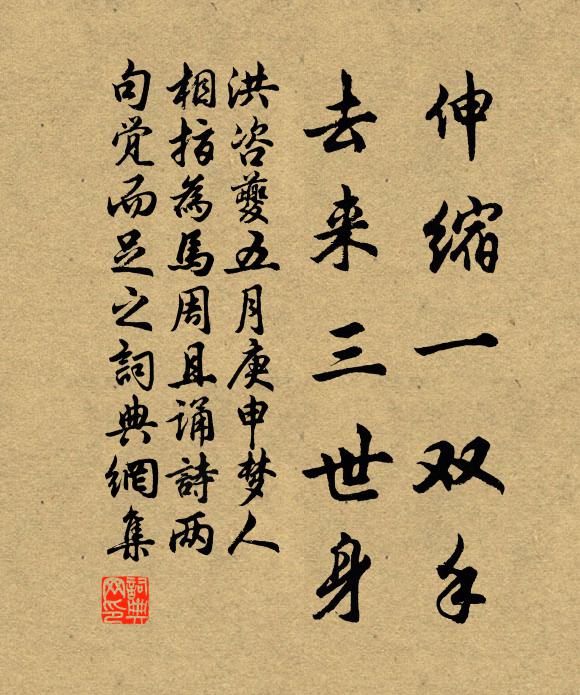 伸缩一双手
去来三世身
洪咨夔五月庚申梦人
相指為馬周且誦詩两
句覺而足之詞典網集
詞典网印